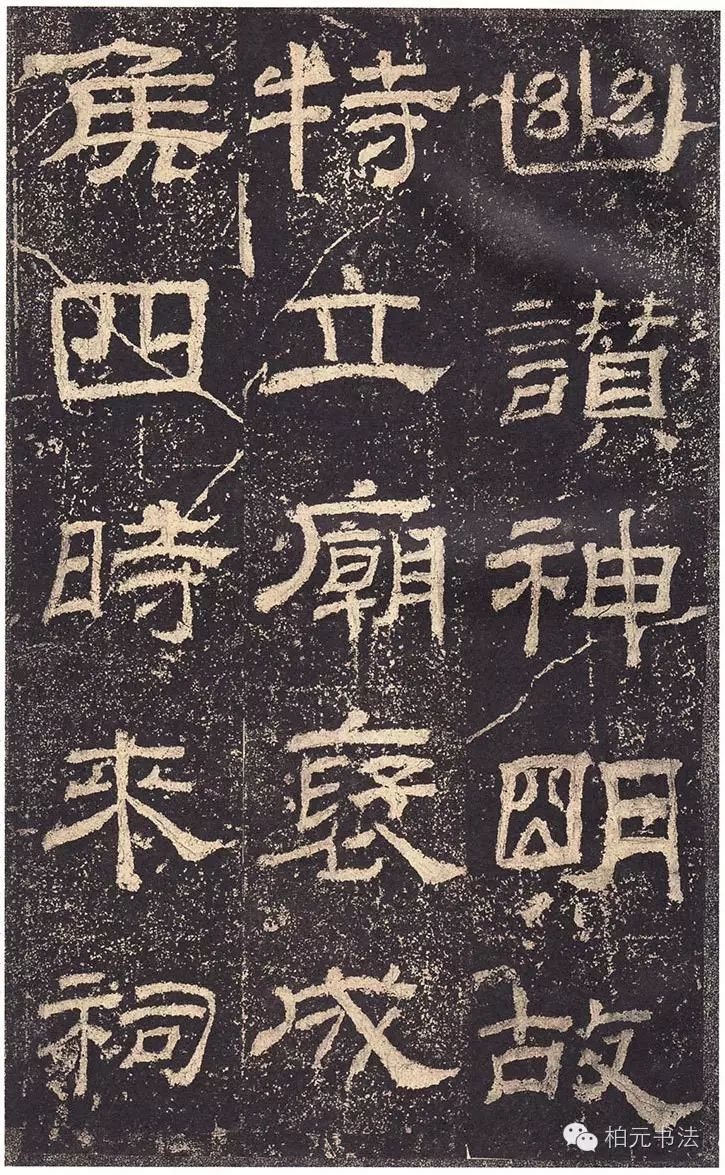 幽讚神明故
特立廟褒成
侯四時來祠
柏元书法